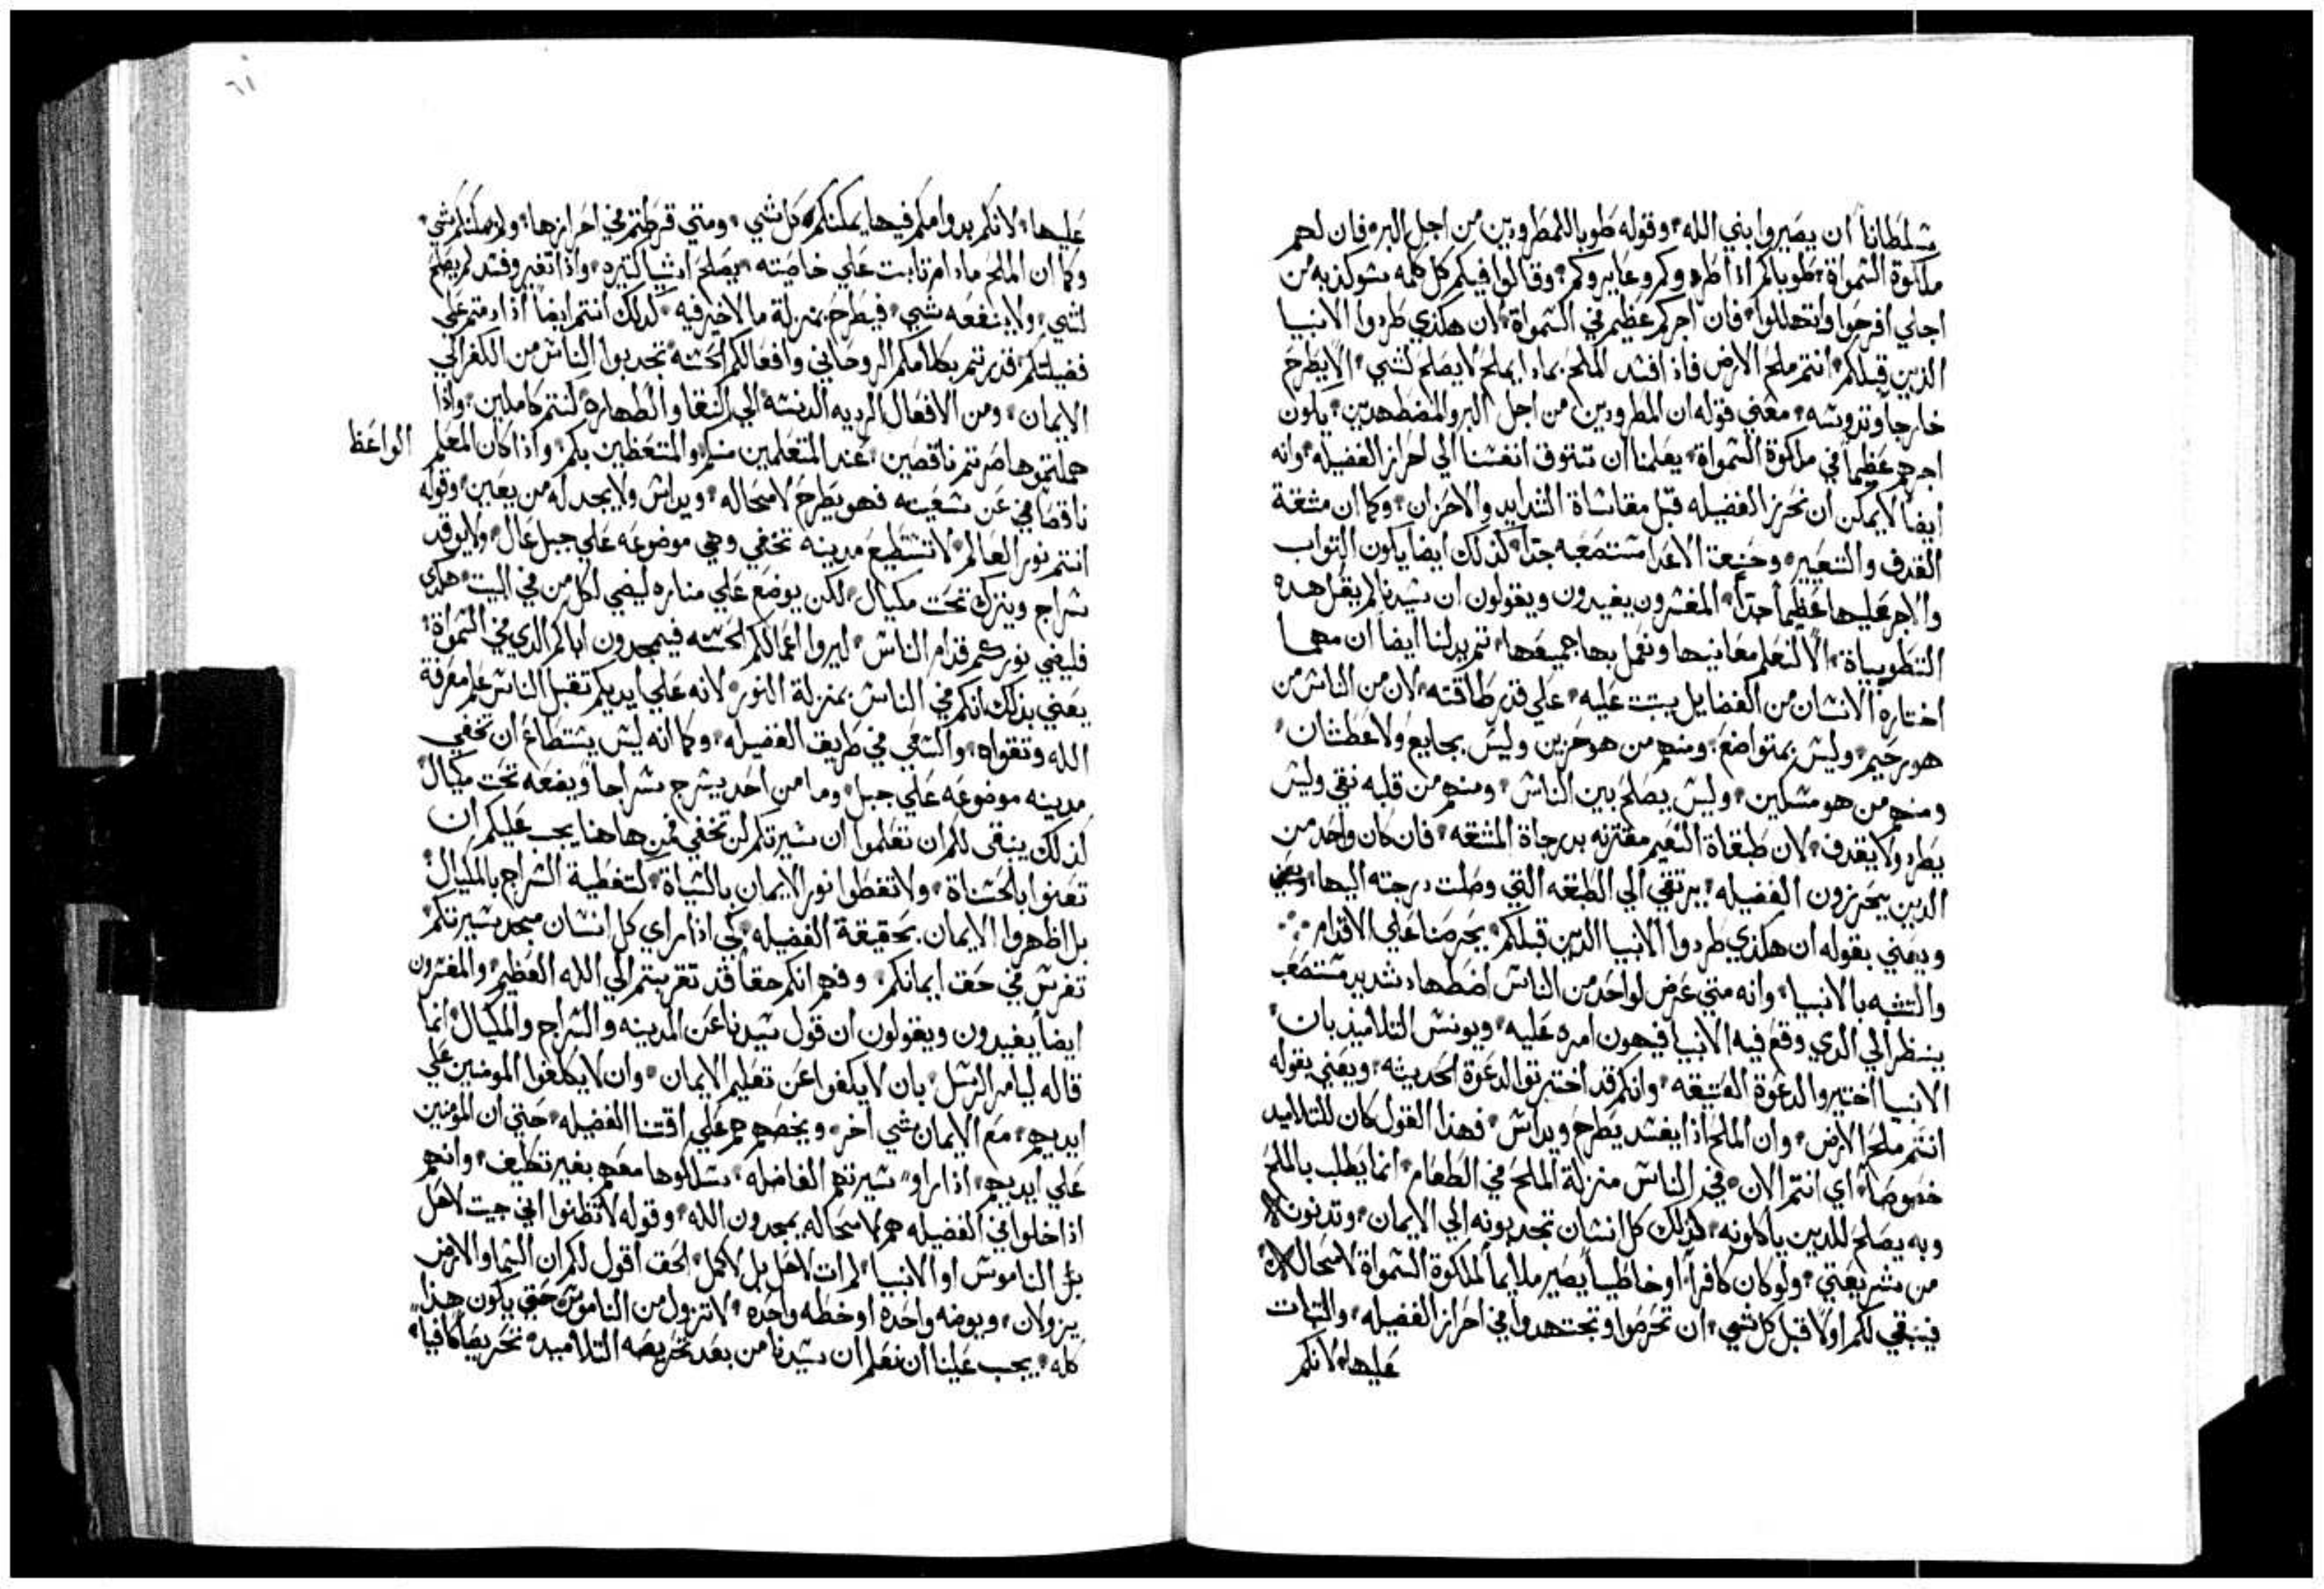 سلطاناً ان يصيروا بني الله، وقوله طوبا للمطرودين من اجل البر، فان لهم
ملكوة السمواة، طوباكم اذا طردوكم وعايروكم، وقالوا فيكم كل كلمه سو كذبه من
اجلي افرحوا وتهللوا، فان اجركم عظيم في السمواة، لان هكذي طردوا الانبيا
الدين قبلكم، انتم ملح الارض فاذا فسد الملح بماذا يملح لا يصلح لشي، الا يطرح
خارجاً وتدوسه، معني قوله ان المطرودين من اجل البر والمضطهدين، يكون
اجرهم عظيماً في ملكوة السمواة، يعلمنا ان نتوق انفسنا الي احراز الفضيله، وانه
ايضاً لا يمكن ان نحرز الفضيله قبل مقاساة الشدايد والاحزان، وكما ان مشقة
القدف والتعيير، الاعدا مستصعبه جداً، كذلك ايضا يكون التواب
والاجر عليها عظيماً جداً، المفسرون يفيدون ويقولون ان سيدنا لم يقل هده
التطويباة، الا لنعلم معانيها ونعمل بها جميعها، تم يدلنا ايضاً ان مهما
اختاره الانسان من الفضايل يتبت عليه، علي قدر طاقته، لان من الناس من
هو رحيم، وليس بمتواضع، ومنهم من هو حزين وليس بجايع ولا عطشان،
ومنهم من هو مسكين، وليس يصلح بين الناس، ومنهم من قلبه نقي وليس
يطرد ولا يقدف، لان طبقاة النعيم مقترنه بدرجاة المشقه، فان كان واحد من
الدين يحرزون الفضيله، يرتقي الي الطبقه التي وصلت درجته اليها،
ويعني بقوله ان هكذي طردوا الانبيا الدين قبلكم، يحرصنا علي الاقدام
والتشبه بالانبيا، وانه متي عرض لواحد من الناس اضطهاد شديد مستصعب
ينظر الي الدي وقع فيه الانبيا فيهون امره عليه، ويونس التلاميذ بان
الانبيا اختيروا لدعوة العتيقه، وانكم قد اخترتوا لدعوة الحديته، ويعني بقوله
انتم ملح الارض، وان الملح اذا يفسد يطرح ويداس، فهذا القول كان للتلاميد
خصوصاً، اي انتم الان، في الناس منزلة الملح في الطعام، انما يطلب بالملح
وبه يصلح للدين ياكلونه، كذلك كل انسان تجدبونه الي الايمان، وتدنونه
من شريعتي، ولو كان كافراً، او خاطياً يصير ملايماً لملكوة السمواة لامحاله،
فينبقي لكم اولاً قبل كل شي، ان تحرصوا وتجتهدوا في احراز الفضيله، والتبات
عليها، لانكم
٦١
عليها، لانكم بدوامكم فيها يمكنكم كل شي، ومتي فرطتم في احرازها، ولا يمكنكم شي،
وكما ان الملح مادام تابت علي خاصته، يصلح اشيا كتيره، واذا تغير وفسد لم يصلح
لشي، ولا ينفعه شي، فيطرح بمنزلة ما لا خير فيه، كدلك انتم ايضاً اذا دمتم علي
فضيلتكم، قدرتم بكلامكم الروحاني وافعالكم الحسنه تجدبوا الناس من الكفر الي
الايمان، ومن الافعال الرديه الدنسه الي النقا والطهاره كنتم كاملين، واذا
هملتموها صرتم ناقصين، عند المتعلمين منكم والمتعظين بكم، واذا كان المعلم
الواعظ
ناقصاً في عن شعبه فهو يطرح لامحاله، ويداس ولا يجد له من يعين، وقوله
انتم نور العالم، لا تستطيع مدينه تخفي وهي موضوعه علي جبل عال، ولا يوقد
سراج ويترك تحت مكيال، لكن يوضع علي مناره ليضي لكل من في البيت، هكدي
فليضي نوركم قدام الناس، ليروا اعمالكم الحسنه فيمجدون اباكم الدي في السمواة،
يعني بذلك انكم في الناس بمنزلة النور، لانه علي ايديكم تقبل الناس علم معرفة
الله وتقواه، والسعي في طريق الفضيله، وكما انه ليس يستطاع ان تخفي
مدينه موضوعه علي جبل، وما من احد يسرج سراجا ويضعه تحت مكيال
لذلك ينبقي لكم ان تعلموا ان سيرتكم لن تخفي فمن هاهنا يجب عليكم ان
تعنوا بالحسناة، ولا تغطوا نور الايمان بالسياة، كتغطية السراج بالمكيال،
بل اظهروا الايمان بحقيقة الفضيله، لكي اذا راي كل انسان مجد سيرتكم
تفرس في حق ايمانكم، وفهم انكم حقاً قد تقربتم الي الله العظيم، والمفسرون
ايضاً يفيدون ويقولون ان قول سيدنا عن المدينه والسراج والمكيال، انما
قاله ليامر الرسل، بان لا يكفوا عن تعليم الايمان، وان لا يكلفوا المومنين علي
ايديهم، مع الايمان شي اخر، ويخصهم هم علي اقتنا الفضيله، حتي ان المومنين
علي ايديهم، اذا راو سيرتهم الفاضله، سلكوها معهم بغير تكليف، وانهم
اذا خلوا في الفضيله هم لامحاله يمجدون الله، وقوله لا تظنوا اني جيت لاحل
الناموس او الانبيا، لم ات لاحل بل لاكمل، الحق اقول لكم ان السما والارض
يزولان، ويوضه واحده او خطه واحده، لا تزول من الناموس حتي يكون هذا
كله، يجب علينا ان نعلم ان سيدنا من بعد تحريصه التلاميد، تحريصاً كافيا،